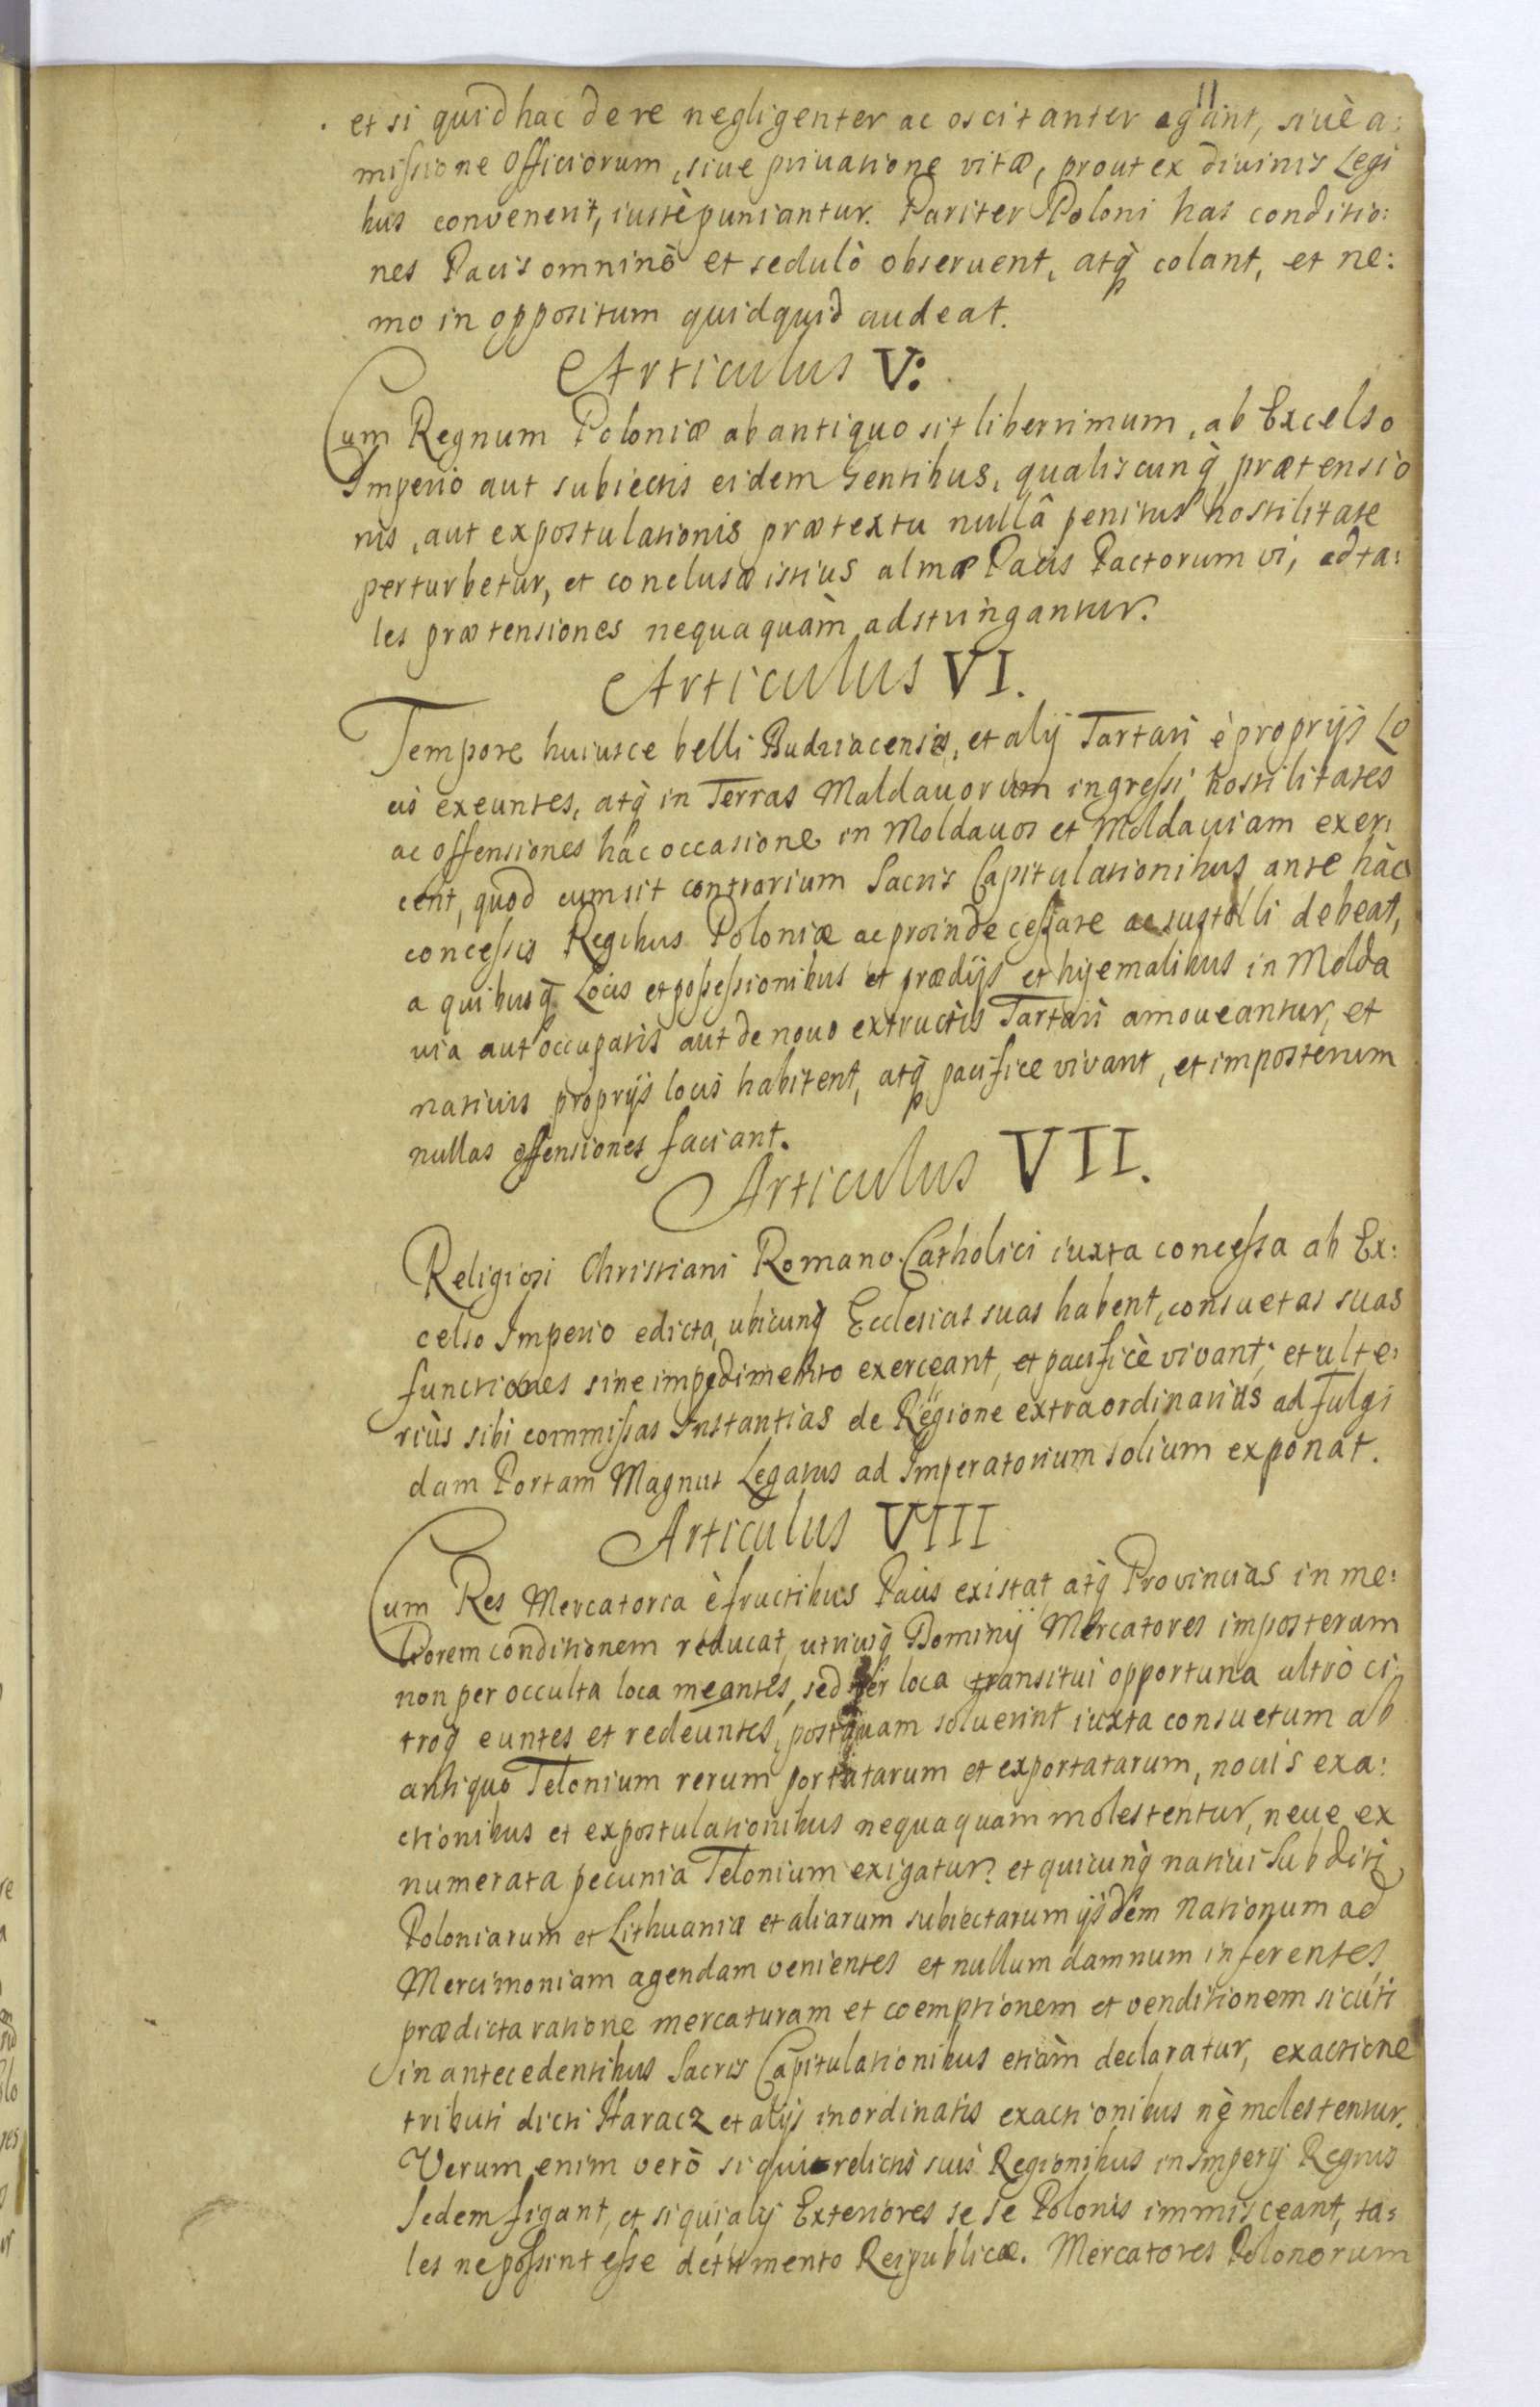 11
et si quid hac de re negligenter ac oscitanter agant, siuè a:
missione Officiorum, siue priuatione vitæ, prout ex diuinis Legi
bus convenerit, iustè puniantur. Pariter Poloni has conditio:
nes Pacis omninò et sedulò obseruent, atq̀ colant, et ne:
mo in oppositum quidquid audeat.
Articulus V:
Cum Regnum Poloniæ ab antiquo sit liberrimum, ab Excelso
Imperio aut subiectis eidem Gentibus, qualiscunq̀ prætensio
nis, aut expostulationis prætextu nullâ penitus hostilitate
perturbetur, et conclusæ istius almæ Pacis Pactorum vi, ad ta:
les prætensiones nequaquàm adstringantur.
Articulus VI.
Tempore huiusce belli Budziacenses, et alij Tartari è proprijs Lo
cis exeuntes, atq̀ in Terras Maldauorum ingressi hostilitates
ac offensiones hâc occasione in Moldauos et Moldauiam exer:
cent, quod cum sit contrarium Sacris Capitulationibus ante hàc
concessis Regibus Poloniæ ac proinde cessare ac sustolli debeat,
a quibusq̀ Locis et possessionibus et prædijs et hyemalibus in Molda
uia aut occupatis aut de nouo extructis Tartari amoueantur, et
natiuis proprijs locis habitent, atq̀ pacifice vivant, et imposterum
nullas offensiones faciant.
Articulus VII.
Religiosi Christiani Romano Catholici iuxta concessa ab Ex:
celso Imperio edicta, ubicunq̀ Ecclesias suas habent, consuetas suas
functiones sine impedimento exerceant, et pacificè vivant; et ulte:
riùs sibi commissas Instantias de Regione extraordinarius ad Fulgi
dam Portam Magnus Legatus ad Imperatorium solium exponat.
Articulus VIII
Cum Res Mercatoria è fructibus Pacis existat, atq̀ Provincias in me:
liorem conditionem reducat, utriusq̀ Dominij Mercatores imposterum
non per occulta loca meantes, sed per loca transitui opportuna ultrò ci
troq̀ euntes et redeuntes, postquam soluerint iuxta consuetum ab
antiquo Telonium rerum portatarum et exportatarum, nouis exa:
ctionibus et expostulationibus nequaquam molestentur, neue ex
numerata pecunia Telonium exigatur? et quicunq̀ natiui Subditi
Poloniarum et Lithuaniæ et aliarum subiectarum ijsdem Nationum ad
Mercimoniam agendam venientes et nullum damnum inferentes,
prædicta ratione mercaturam et coemptionem et venditionem sicuti
in antecedentibus Sacris Capitulationibus etiàm declaratur, exactione
tributi dicti Haracz et alijs inordinatis exactionibus nè molestentur.
Verum enim verò si qui relictis suis Regionibus in Imperij Regnis
Sedem figant, et si qui alij Exteriores se se Polonis immisceant, ta:
les ne possint esse detrimento Reipublicæ. Mercatores Polonorum